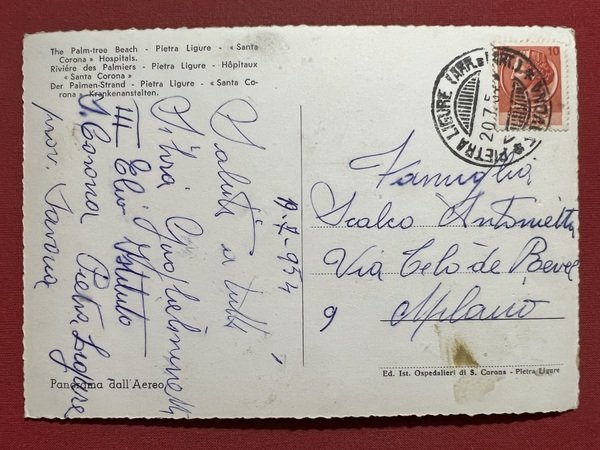 The Palm-tree Beach - Pietra Ligure - «Santa
Corona» Hospitals.
Riviére des Palmiers - Pietra Ligure - Hôpitaux
«Santa Corona»
Der Palmen-Strand - Pietra Ligure - «Santa Co-
rona» Krankenanstalten.
19-7-954
Saluti a tutti
Silvia Guglielminetti
III Elio Istituto
S. Corona Pietra Ligure
prov. Savona
Panorama dall'Aereo
10
PIETRA LIGURE
20.7.5
Famiglia
Scalco Antonietta
Via Celò de Bevel
9 Milano
Ed. Ist. Ospedalieri di S. Corona - Pietra Ligure